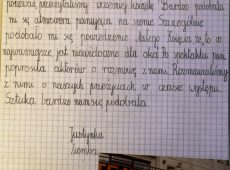 przeczytaliśmy wcześniej książkę. Bardzo podobała
mi się atmosfera panująca na scenie. Szczególnie
podobało mi się powiedzenie Małego Księcia, że to co
najważniejsze jest niewidoczne dla oka. Po spektaklu pani
poprosiła aktorów o rozmowę z nami. Rozmawialiśmy
z nimi o naszych przeżyciach w czasie występu.
Sztuka bardzo mi się podobała.
Justynka
Ziemba